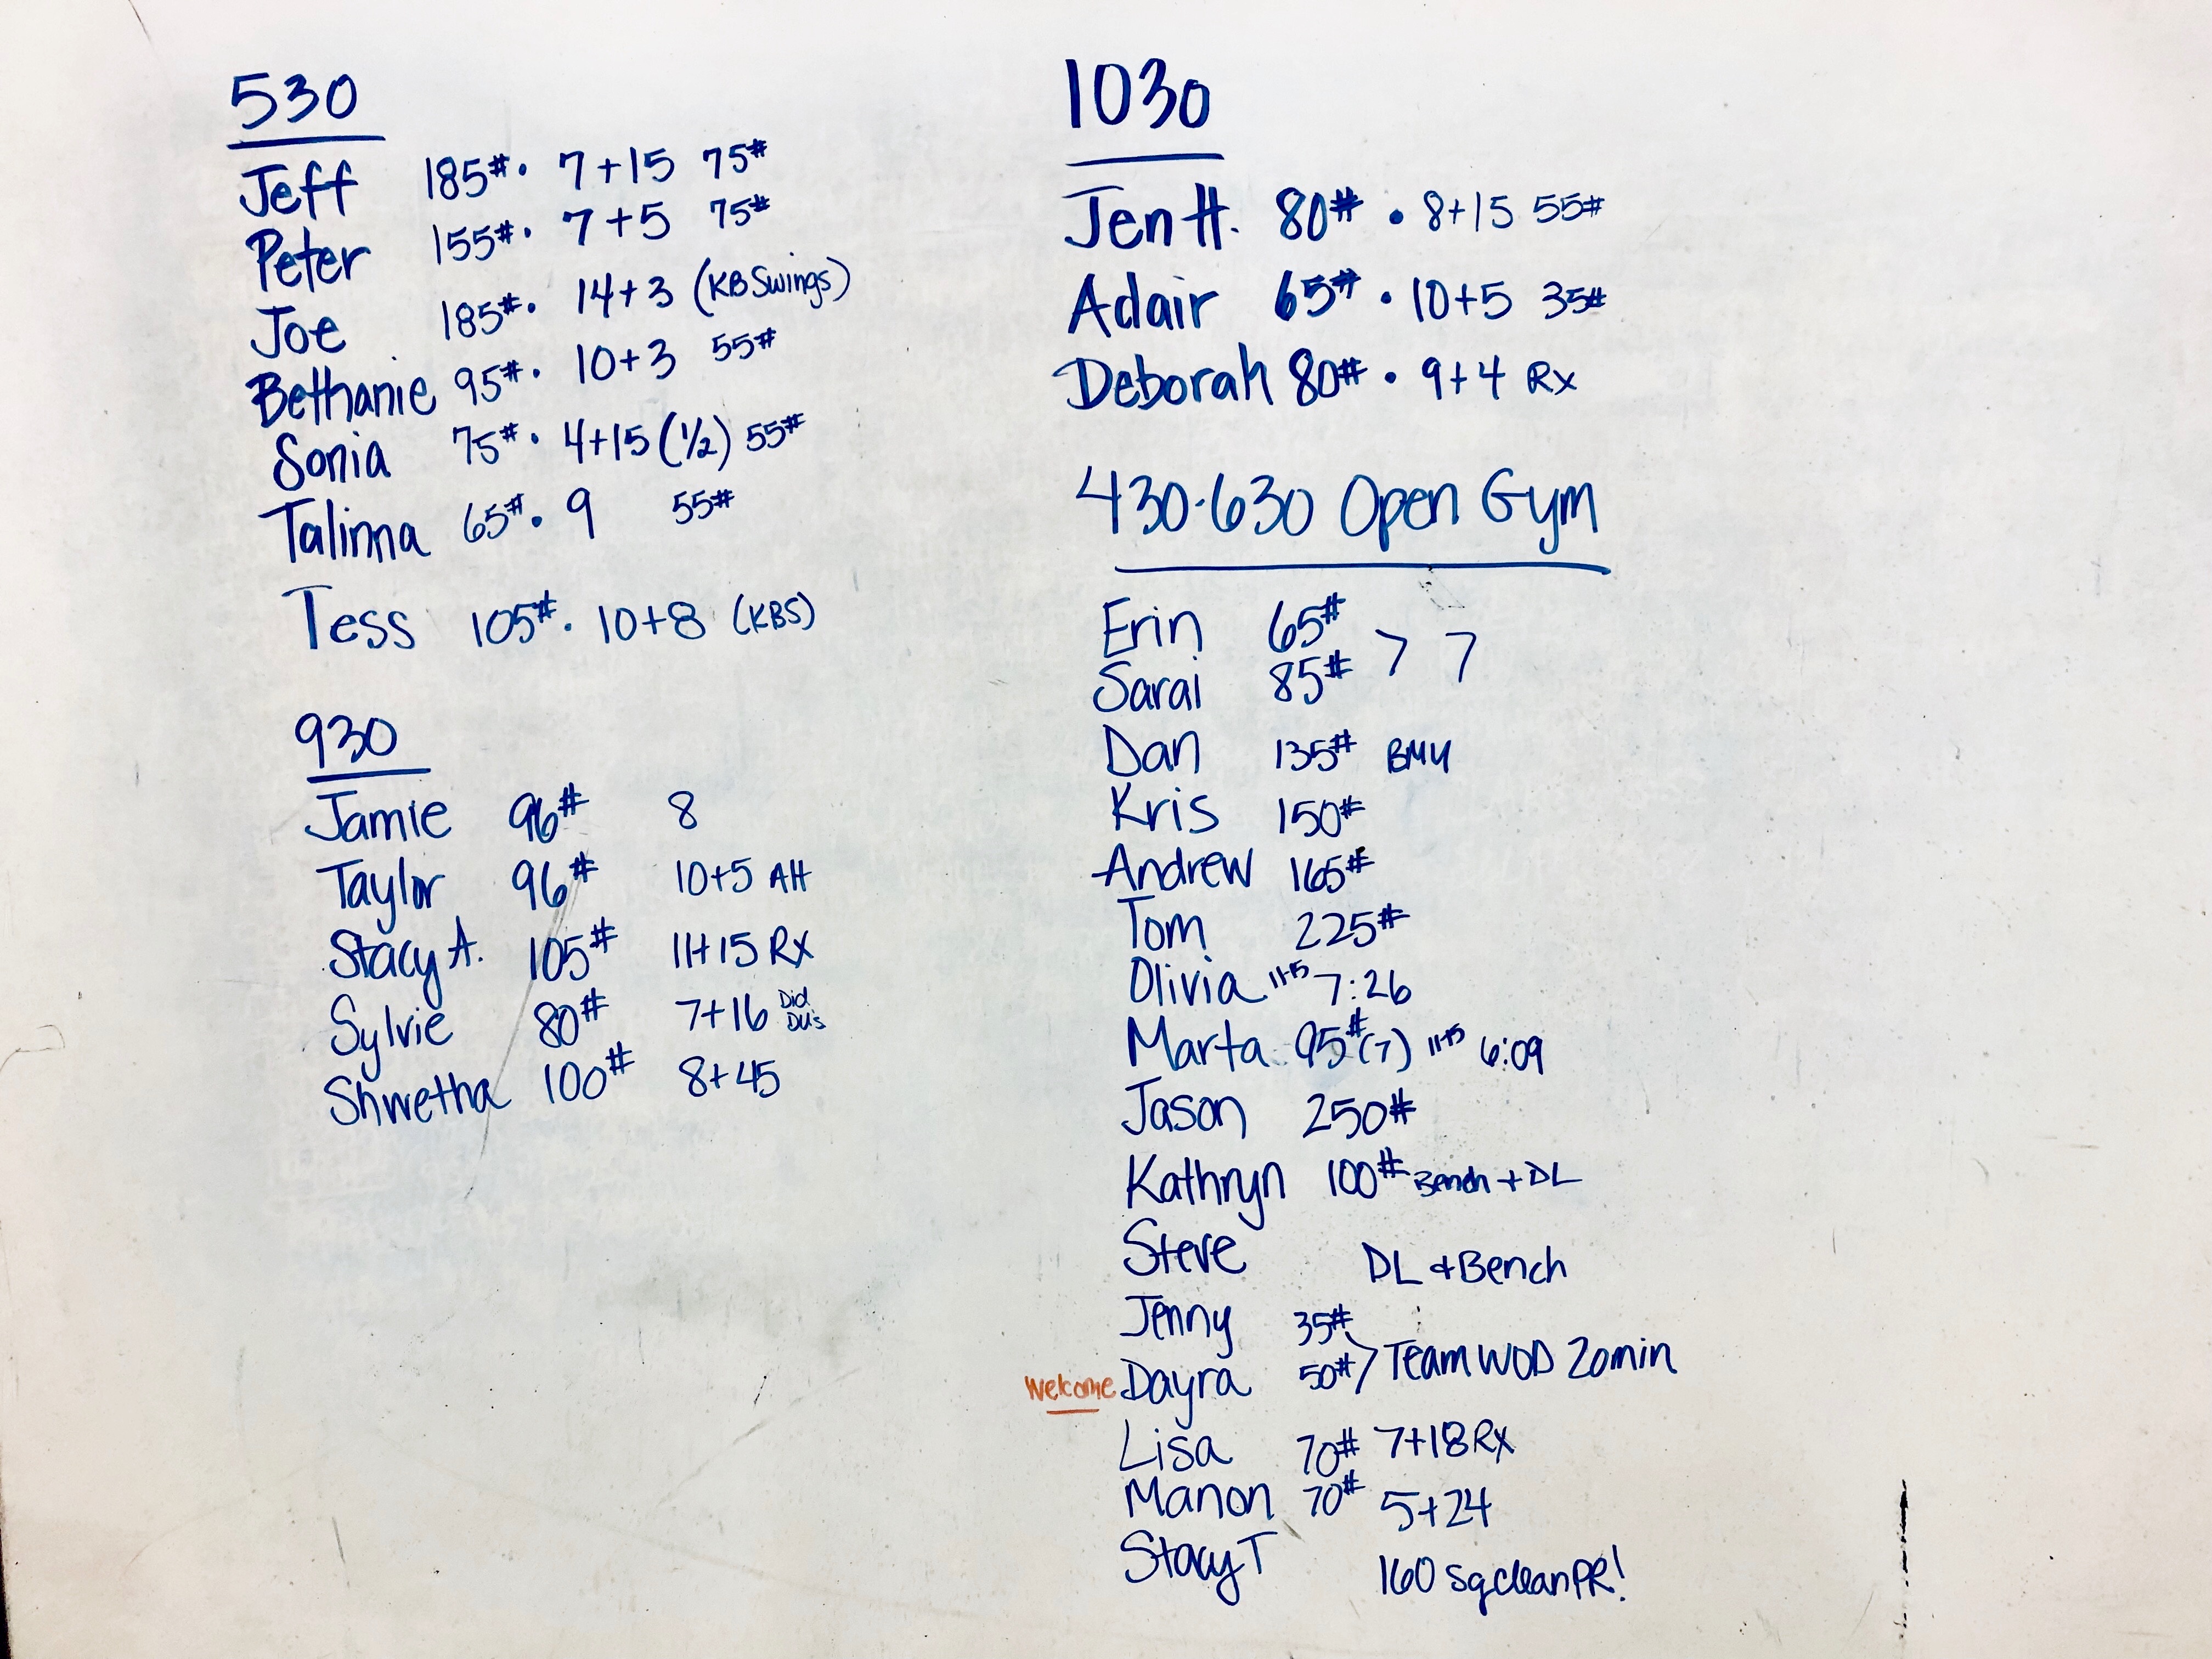 530
Jeff 185#. 7+15 75#
Peter 155#. 7+5 75#
Joe 185#. 14+3 (KB Swings)
Bethanie 95#. 10+3 55#
Sonia 75#. 4+15 (1/2) 55#
Talinna 65#. 9 55#
Tess 105#. 10+8 (KBS)
930
Jamie 96# 8
Taylor 96# 10+5 AH
Stacy A. 105# 11+15 RX
Sylvie 80# 7+16 Did
DU's
Shwetha 100# 8+45
1030
Jen H. 80# • 8+15 55#
Adair 65# • 10+5 35#
Deborah 80# • 9+4 Rx
430-630 Open Gym
Erin 65#
> 7
Sarai 85#
Dan 135# BMU
Kris 150#
Andrew 165#
Tom 225#
Olivia 11-15 7:26
Marta 95# (7) 11-15 6:09
Jason 250#
Kathryn 100# Bench + DL
Steve DL & Bench
Jenny 35#
> Team WOD 20min
Welcome Dayra 50#
Lisa 70# 7+18 RX
Manon 70# 5+24
Stacy T 160 sq clean PR!